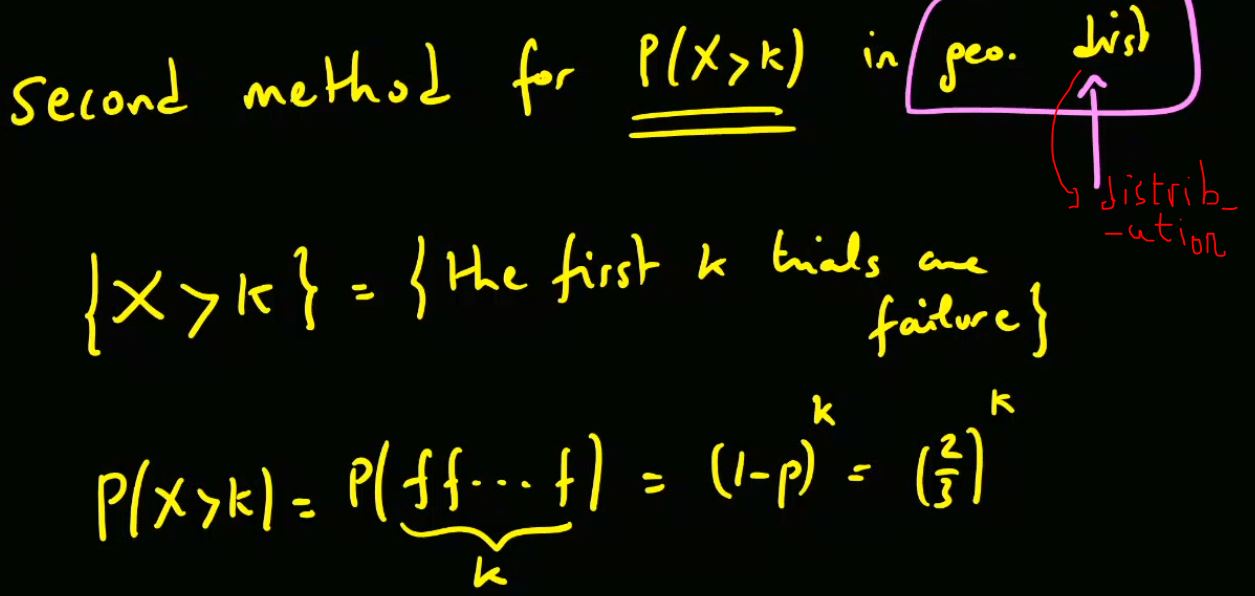 second method for P(X>k) in geo. dist
distrib-
-ution
{X>k} = {the first k trials are
failure}
P(X>k) = P(ff...f) = (1-p)^k = (2/3)^k
k